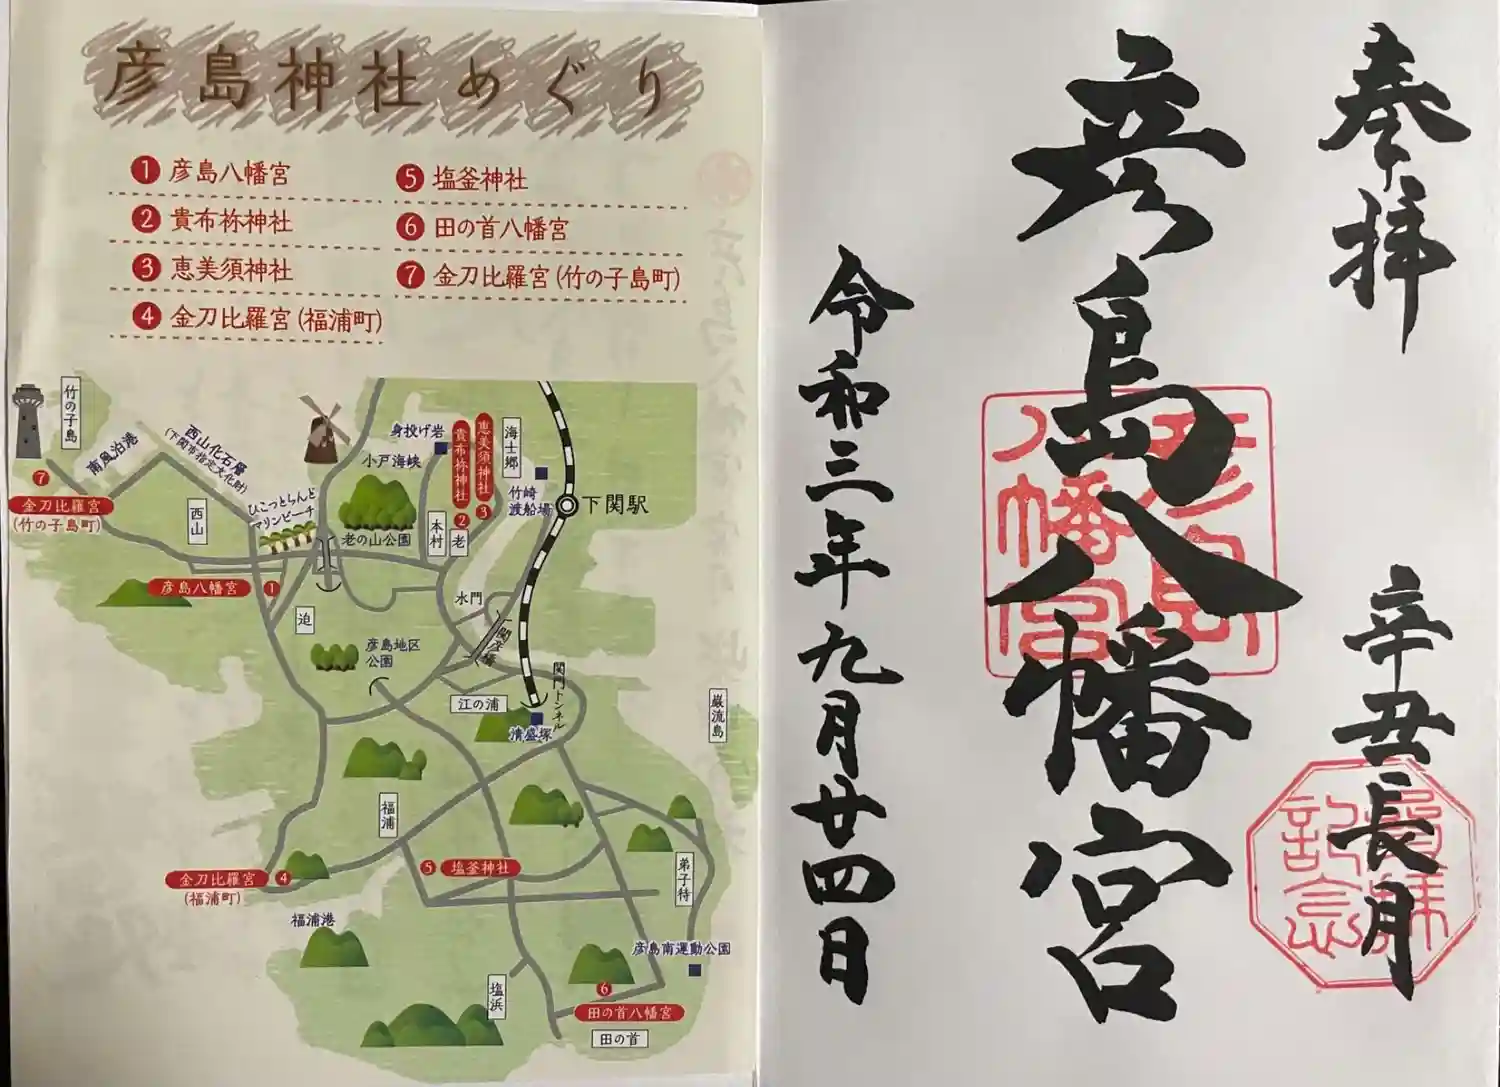 彦島神社めぐり
1 彦島八幡宮
2 貴布祢神社
3 恵美須神社
4 金刀比羅宮(福浦町)
5 塩釜神社
6 田の首八幡宮
7 金刀比羅宮(竹の子島町)
竹の子島
南風泊港
西山化石層
(下関市指定文化財)
7
金刀比羅宮
(竹の子島町)
西山
ひこっとらんど
マリンビーチ
身投げ岩
小戸海峡
老の山公園
貴布祢神社
2
恵美須神社
3
海士郷
竹崎
渡船場
下関駅
本村
老
彦島八幡宮 1
迫
水門
関彦橋
彦島地区
公園
江の浦
関門トンネル
清盛塚
巌流島
福浦
金刀比羅宮 4
(福浦町)
5 塩釜神社
弟子待
福浦港
彦島南運動公園
塩浜
6
田の首八幡宮
田の首
奉拝
辛丑長月
彦島八幡宮
令和三年九月廿四日
彦島
八幡宮
参拝
記念